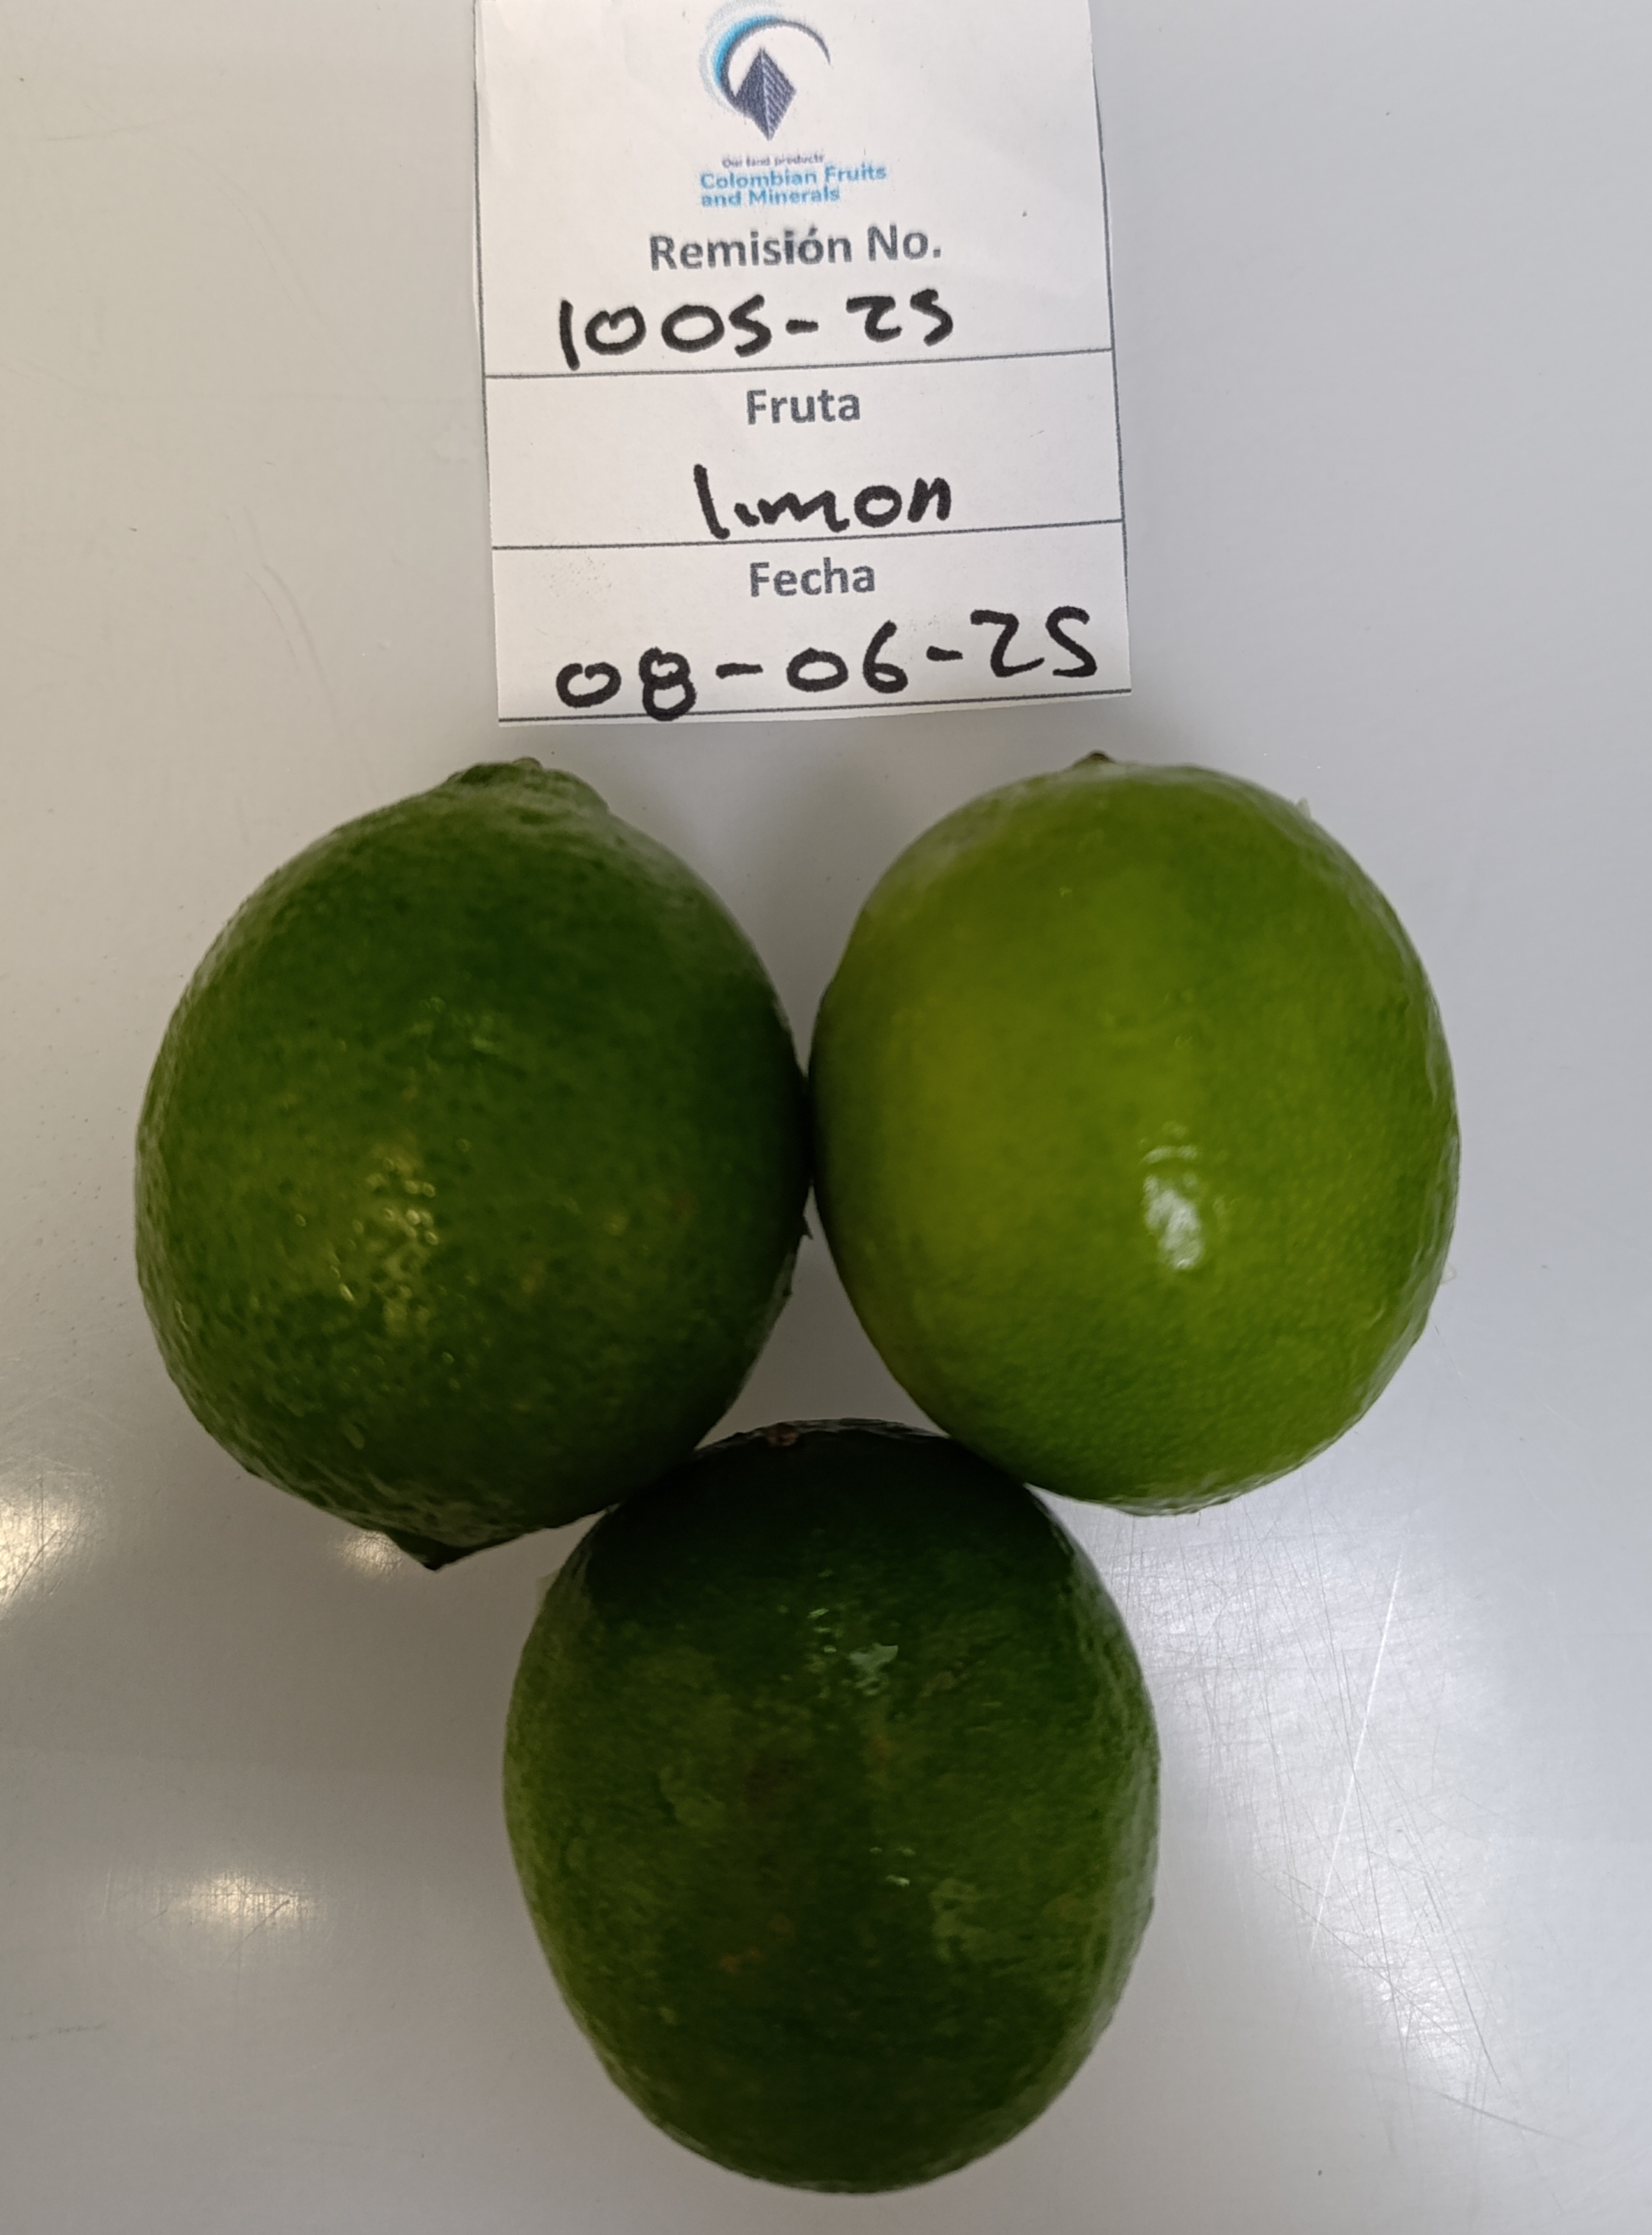 Our land products
Colombian Fruits
and Minerals
Remisión No.
1005-25
Fruta
limon
Fecha
08-06-25